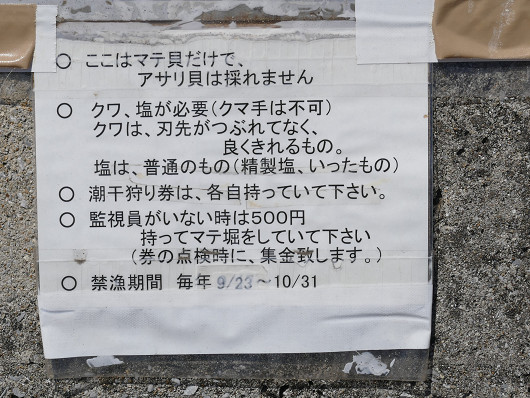 ○ ここはマテ貝だけで、
アサリ貝は採れません
○ クワ、塩が必要(クマ手は不可)
クワは、刃先がつぶれてなく、
良くきれるもの。
塩は、普通のもの(精製塩、いったもの)
○ 潮干狩り券は、各自持っていて下さい。
○ 監視員がいない時は500円
持ってマテ堀をしていて下さい
(券の点検時に、集金致します。)
○ 禁漁期間 毎年 9/23~10/31